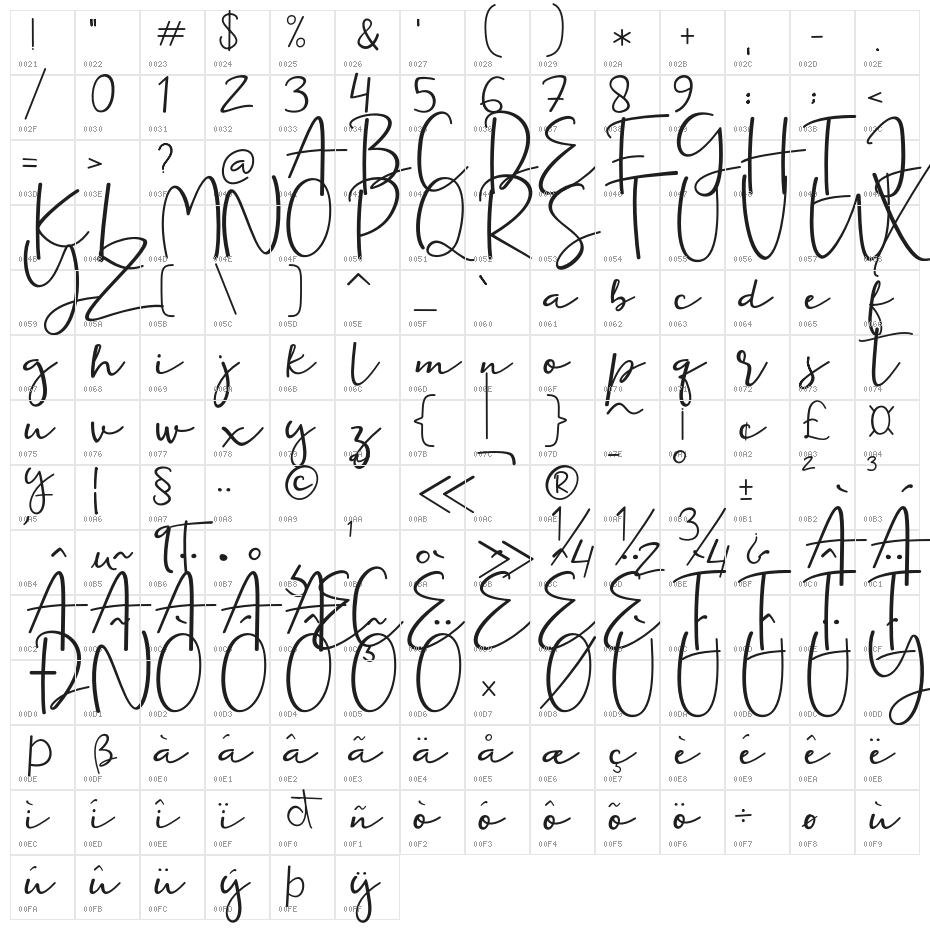 ! " # $ % & ' ( ) * + , - .
0021 0022 0023 0024 0025 0026 0027 0028 0029 002A 002B 002C 002D 002E
/ 0 1 2 3 4 5 6 7 8 9 : ; <
002F 0030 0031 0032 0033 0034 0035 0036 0037 0038 0039 003A 003B 003C
= > ? @ A B C D E F G H I J
003D 003E 003F 0040 0041 0042 0043 0044 0045 0046 0047 0048 0049 004A
K L M N O P Q R S T U V W X
004B 004C 004D 004E 004F 0050 0051 0052 0053 0054 0055 0056 0057 0058
Y Z [ \ ] ^ _ ` a b c d e f
0059 005A 005B 005C 005D 005E 005F 0060 0061 0062 0063 0064 0065 0066
g h i j k l m n o p q r s t
0067 0068 0069 006A 006B 006C 006D 006E 006F 0070 0071 0072 0073 0074
u v w x y z { | } ~ ¡ ¢ £ ¤
0075 0076 0077 0078 0079 007A 007B 007C 007D 007E 00A1 00A2 00A3 00A4
¥ ¦ § ¨ © ª « ¬ ® ¯ ° ± ² ³
00A5 00A6 00A7 00A8 00A9 00AA 00AB 00AC 00AE 00AF 00B0 00B1 00B2 00B3
´ µ ¶ · ¸ ¹ º » ¼ ½ ¾ ¿ À Á
00B4 00B5 00B6 00B7 00B8 00B9 00BA 00BB 00BC 00BD 00BE 00BF 00C0 00C1
Â Ã Ä Å Æ Ç È É Ê Ë Ì Í Î Ï
00C2 00C3 00C4 00C5 00C6 00C7 00C8 00C9 00CA 00CB 00CC 00CD 00CE 00CF
Ð Ñ Ò Ó Ô Õ Ö × Ø Ù Ú Û Ü Ý
00D0 00D1 00D2 00D3 00D4 00D5 00D6 00D7 00D8 00D9 00DA 00DB 00DC 00DD
Þ ß à á â ã ä å æ ç è é ê ë
00DE 00DF 00E0 00E1 00E2 00E3 00E4 00E5 00E6 00E7 00E8 00E9 00EA 00EB
ì í î ï ð ñ ò ó ô õ ö ÷ ø ù
00EC 00ED 00EE 00EF 00F0 00F1 00F2 00F3 00F4 00F5 00F6 00F7 00F8 00F9
ú û ü ý þ ÿ
00FA 00FB 00FC 00FD 00FE 00FF